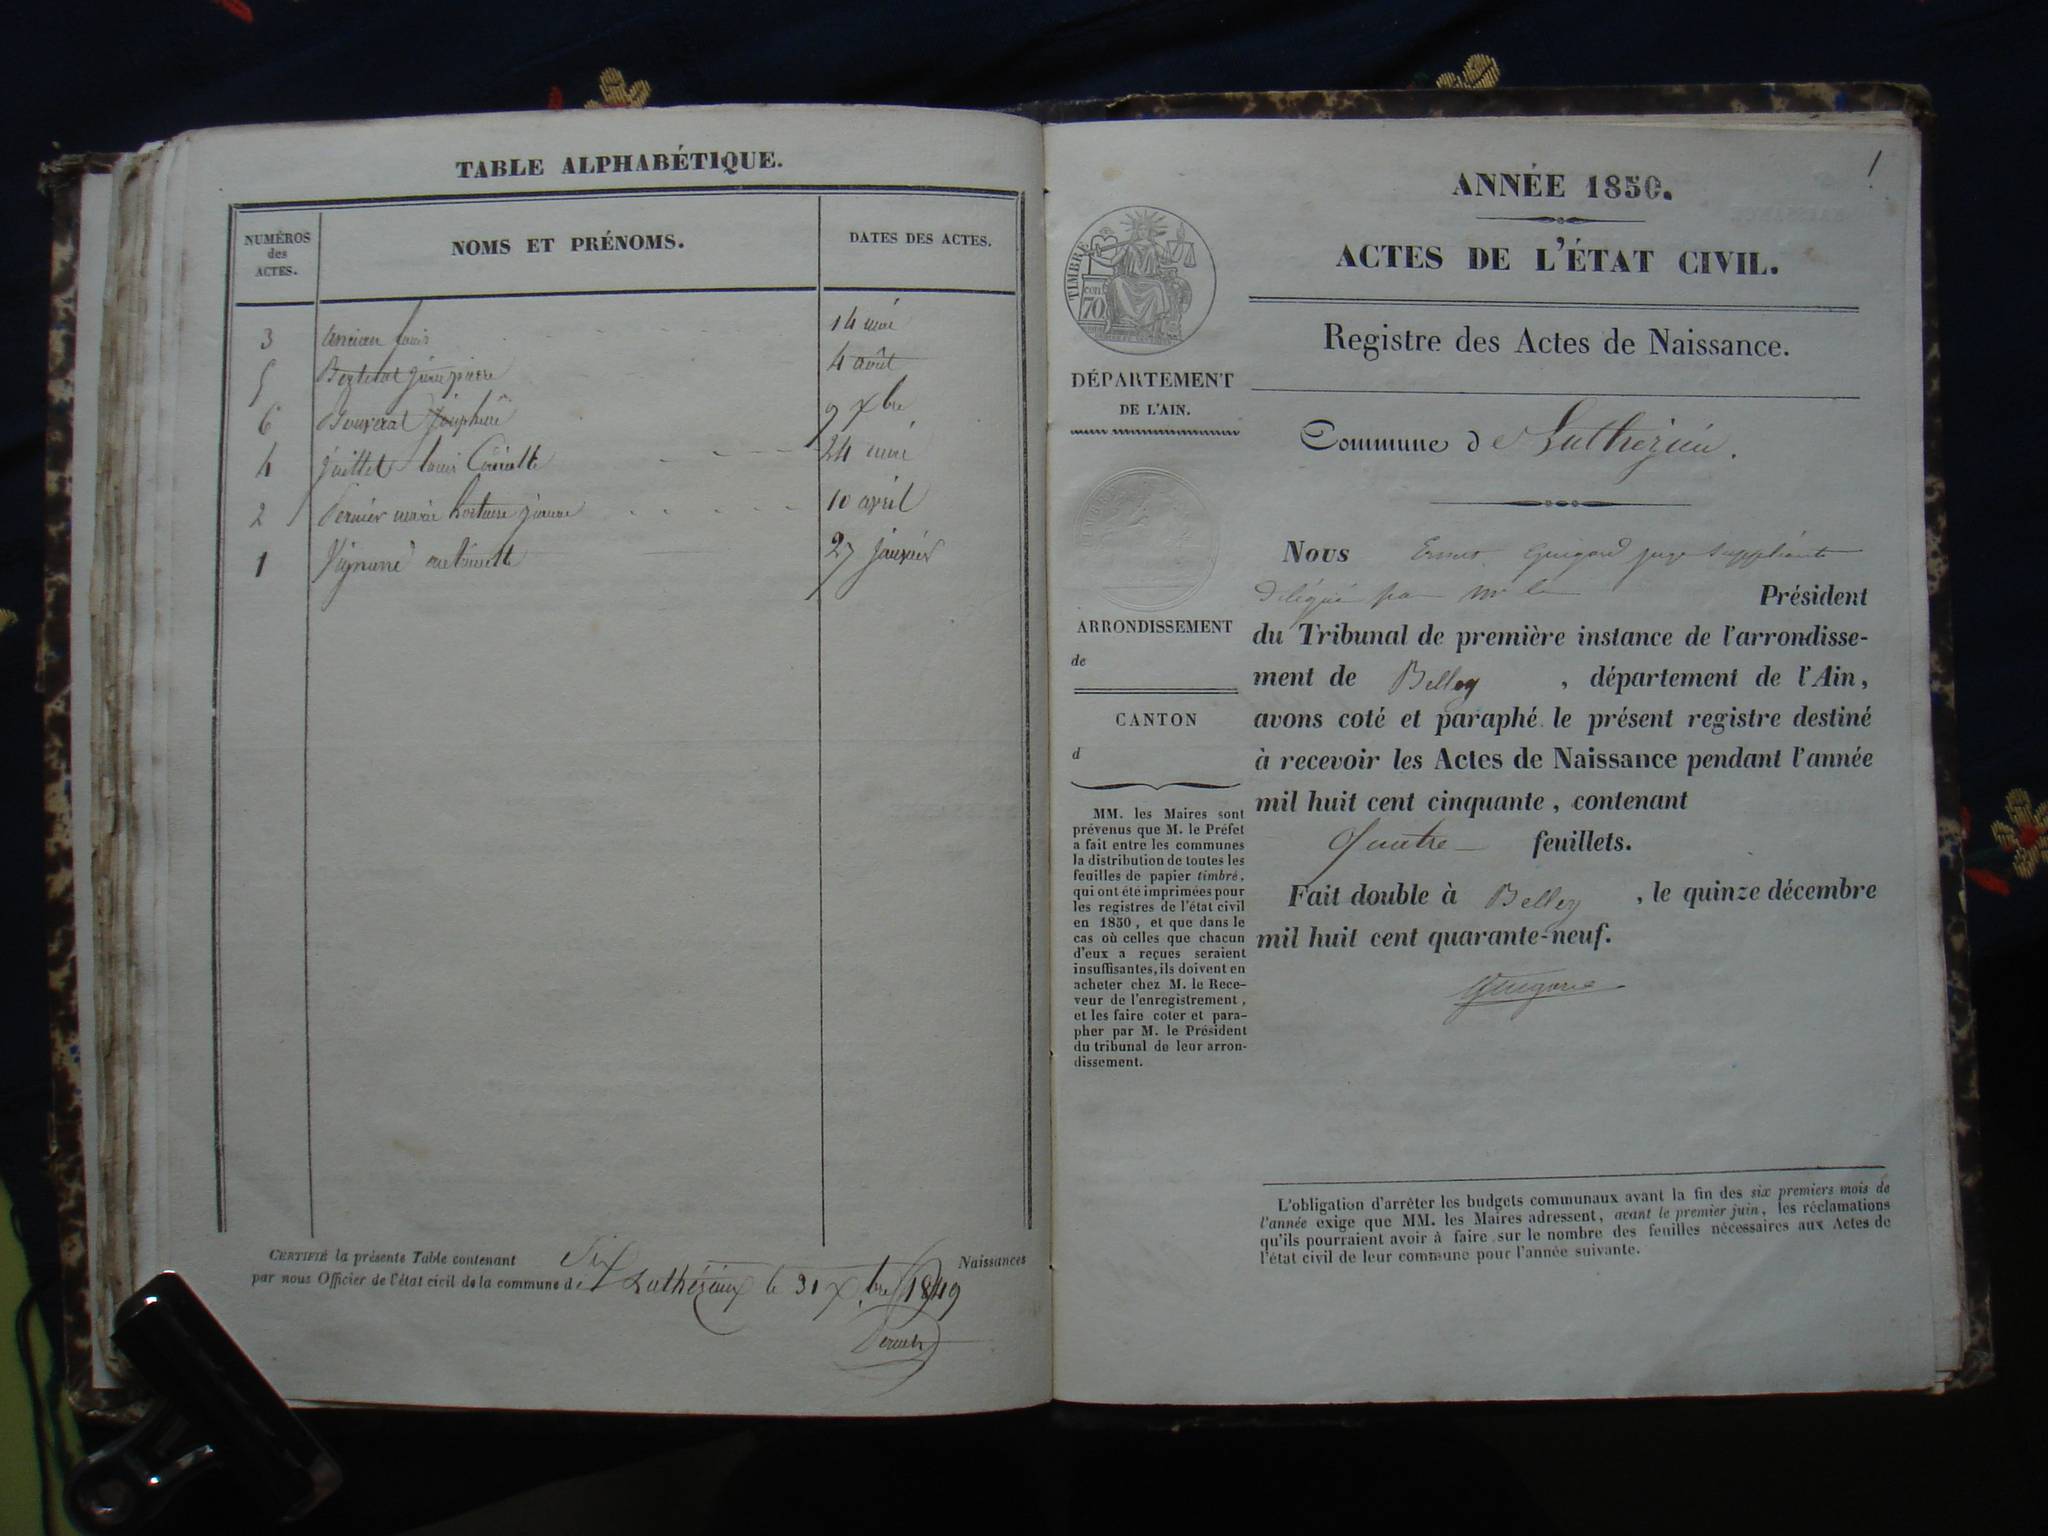 TABLE ALPHABÉTIQUE.
NUMÉROS
des
ACTES.
NOMS ET PRÉNOMS.
DATES DES ACTES.
3 ancian louis 14 mai
5 pierre 4 août
6 Bouverat Josephine 9 Xbre
4 Juillet louis 24 mai
2 Pernier marie 10 avril
1 antoinette 27 janvier
CERTIFIÉ la présente Table contenant Six Naissances
par nous Officier de l'état civil de la commune de Luthézieux le 31 Xbre 1849
1
ANNÉE 1850.
ACTES DE L'ÉTAT CIVIL.
Registre des Actes de Naissance.
TIMBRE
70
DÉPARTEMENT
DE L'AIN.
Commune de Luthezieu.
ARRONDISSEMENT
de
CANTON
d
MM. les Maires sont
prévenus que M. le Préfet
a fait entre les communes
la distribution de toutes les
feuilles de papier timbré,
qui ont été imprimées pour
les registres de l'état civil
en 1850, et que dans le
cas où celles que chacun
d'eux a reçues seraient
insuffisantes, ils doivent en
acheter chez M. le Rece-
veur de l'enregistrement,
et les faire coter et para-
pher par M. le Président
du tribunal de leur arron-
dissement.
Nous Ernest Guigard juge suppléant
délégué par mr le Président
du Tribunal de première instance de l'arrondisse-
ment de Belley, département de l'Ain,
avons coté et paraphé le présent registre destiné
à recevoir les Actes de Naissance pendant l'année
mil huit cent cinquante, contenant
Quatre feuillets.
Fait double à Belley, le quinze décembre
mil huit cent quarante-neuf.
Guigard
L'obligation d'arrêter les budgets communaux avant la fin des six premiers mois de
l'année exige que MM. les Maires adressent, avant le premier juin, les réclamations
qu'ils pourraient avoir à faire sur le nombre des feuilles nécessaires aux Actes de
l'état civil de leur commune pour l'année suivante.